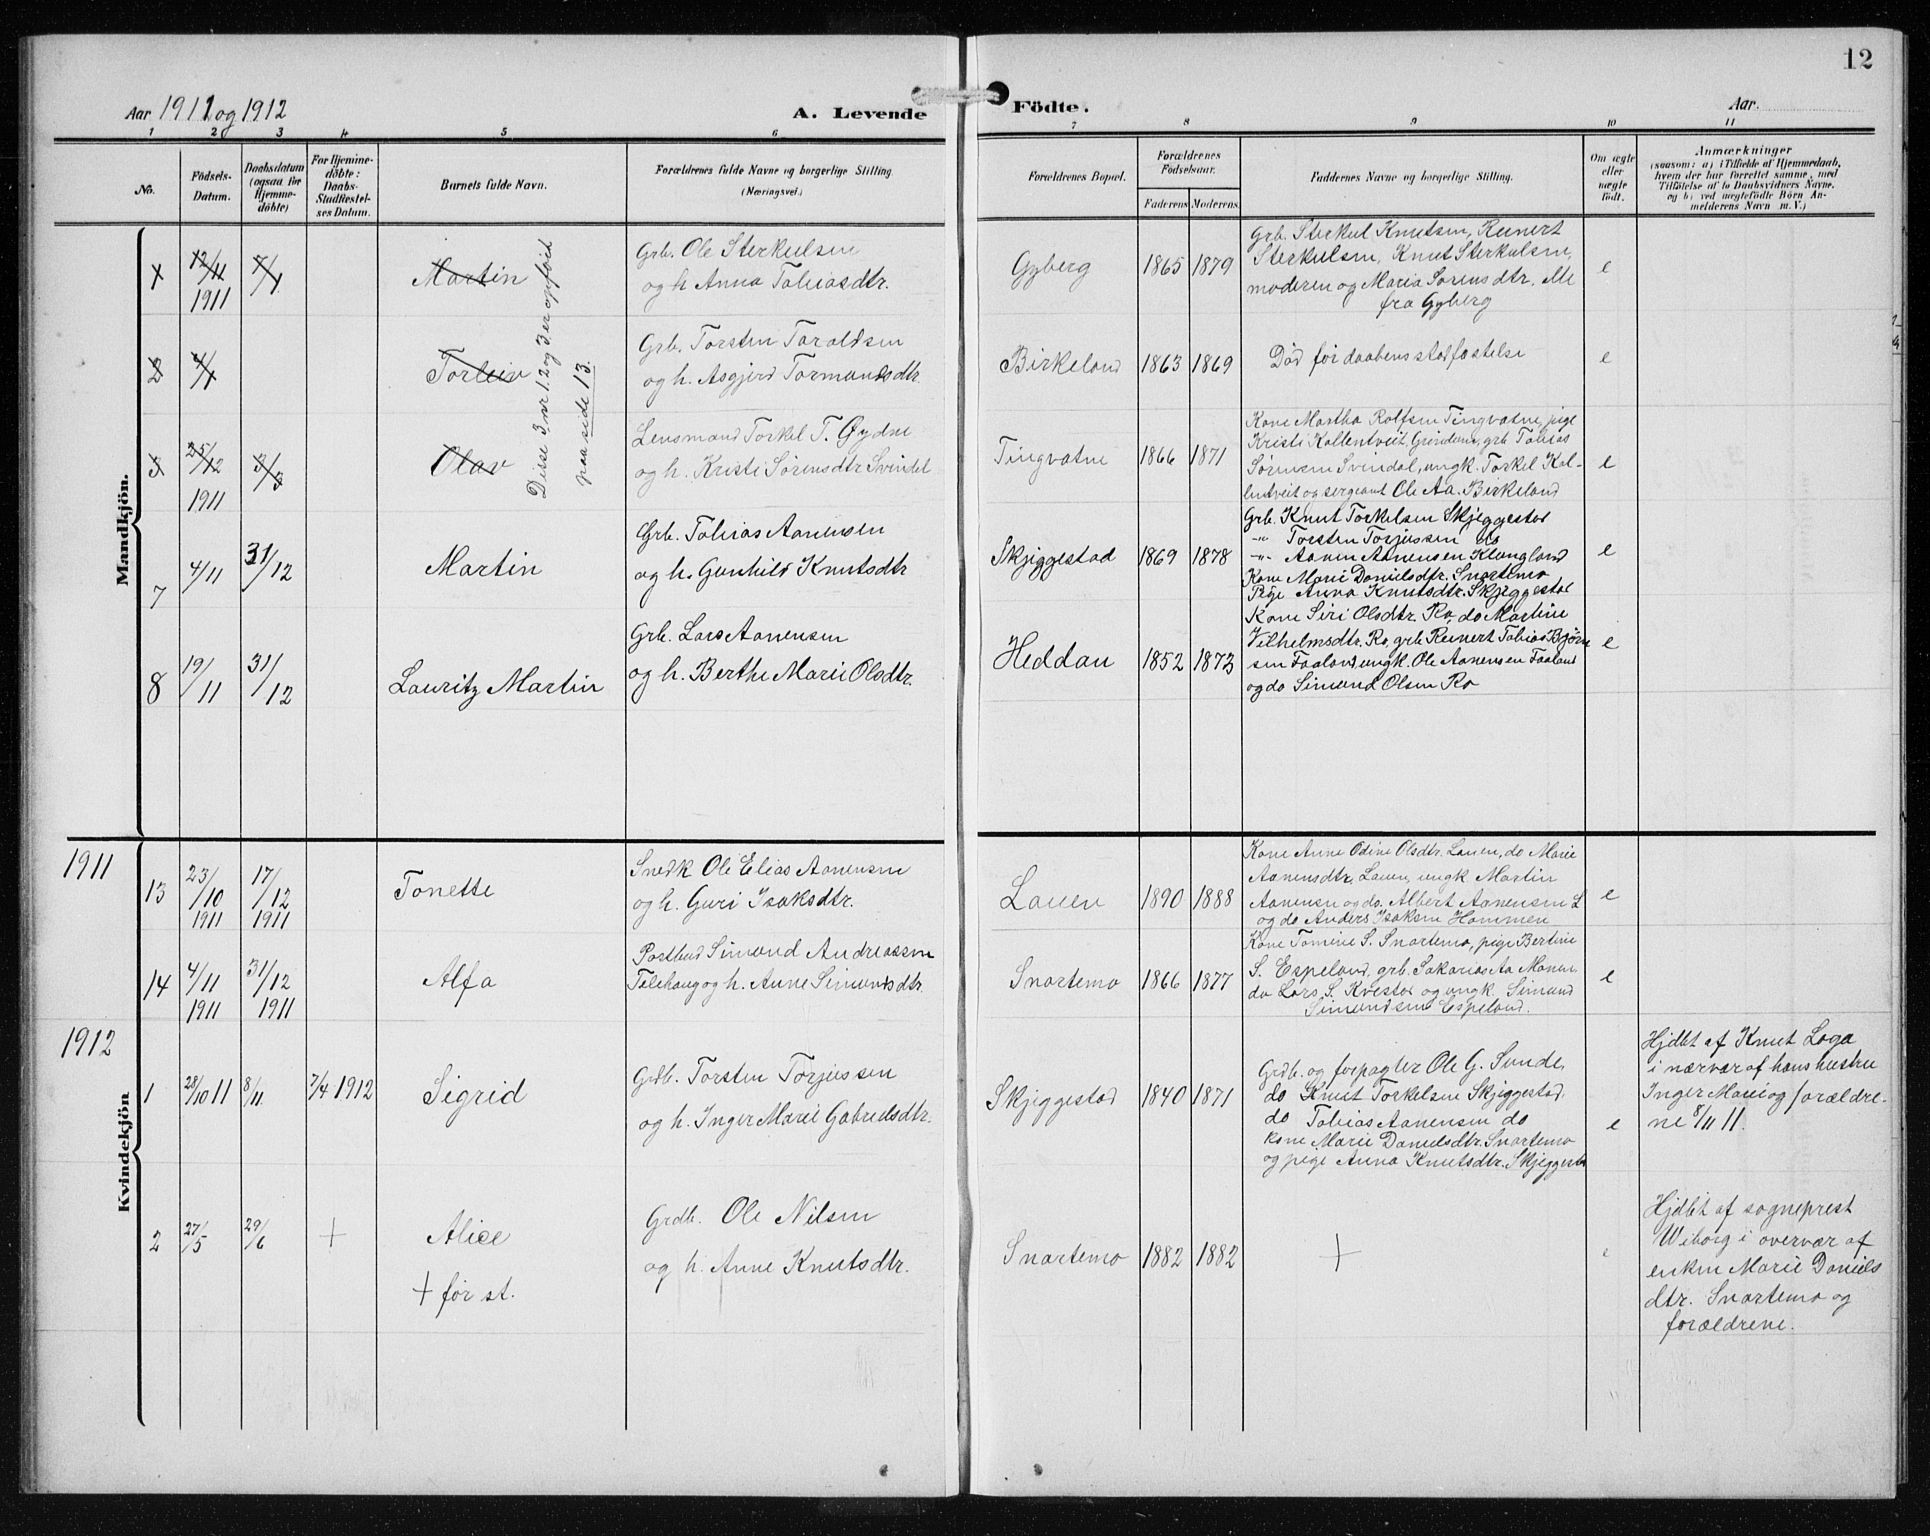 12
Aar 1911 og 1912
A. Levende Födte.
Aar.
1 2 3 4 5 6 7 8 9 10 11
No.
Födsels-Datum.
Daabsdatum (ogsaa for Hjemme-döbte)
For Hjemme-döbte: Daabs-Stadfæstel-ses Datum.
Barnets fulde Navn.
Forældrenes fulde Navne og borgerlige Stilling.
(Næringsvei.)
Forældrenes Bopæl.
Forældrenes Födselsaar.
Faderens Moderens
Faddernes Navne og borgerlige Stilling.
Om ægte eller uægte födt.
Anmærkninger
(saasom: a) i Tilfælde af Hjemmedaab,
hvem der har forrettet samme, med
Tilföielse af to Daabsvidners Navne,
og b) ved uægtefödte Börn An-
melderens Navn m. V.)
Mandkjön.
1 12/11 1911 7/1 Martin
Grb. Ole Sterkulsen
og h. Anna Tobiasdtr.
Gyberg 1865 1879
Grb. Sterkul Knutsen, Reinert
Sterkulsen, Knut Sterkulsen,
moderen og Maria Sørensdtr. Alle
fra Gyberg
e
2 4/1 Torleiv
Grb. Torsten Taraldsen
og h. Asgjerd Tormundsdtr.
Birkeland 1863 1869
Död før daabens stadfæstelse
e
Disse 3, nr 1. 2 og 3 er opført
paa side 13.
3 25/12 1911 3/3 Olav
Lensmand Torkel T. Øydne
og h. Kristi Sørensdtr Svindel
Tingvatne 1866 1871
Kone Martha Rolfsen Tingvatne, pige
Kristi Kollentveit, grb Tobias
Sørensen Svindal, ungk. Torkel Kol-
lentveit og sergeant Ole Aa. Birkeland
e
7 4/11 31/12 Martin
Grb. Tobias Aanensen
og h. Gunhild Knutsdtr
Skjeggestad 1869 1878
Grb. Knut Torkelsen Skjeggestad
-"- Torsten Torjussen do
-"- Aanen Aanensen Klungland
Kone Marie Danielsdtr. Snartemo
Pige Anna Knutsdtr. Skjeggestad
e
8 19/11 31/12 Lauritz Martin
Grb. Lars Aanensen
og h. Berthe Marie Olsdtr.
Heddan 1852 1873
Kone Siri Olsdtr. Ro, do Martine
Vilhelmsdtr. Ro, grb Reinert Tobias Bjørn
sen Faaland, ungk. Ole Aanensen Faaland
og do Simund Olsen Ro
e
Kvindekjön
1911
13 23/10 1911 17/12 1911 Tonette
Snedk Ole Elias Aanensen
og h. Guri Isaksdtr.
Lauen 1890 1888
Kone Anne Odine Olsdtr. Lauen, do Marie
Aanensdtr, Lauen, ungk Martin
Aanensen og do. Albert Aanensen L
og do Anders Isaksen Hommen
e
14 4/11 1911 31/12 1911 Alfa
Postbud Simund Andreassen
Telehaug og h. Anne Simundsdtr.
Snartemo 1866 1877
Kone Tomine S. Snartemo, pige Bertine
S. Espeland, grb. Sakarias Aa Monen
do Lars S. Kvestad og ungk. Simund
Simundsen Espeland.
e
1912
1 28/10 11 8/11 7/4 1912 Sigrid
Grdb. Torsten Torjussen
og h. Inger Marie Gabrielsdtr.
Skjeggestad 1840 1871
Grdb. og forpagter Ole G. Sunde,
do Knut Torkelsen Skjeggestad,
do Tobias Aanensen do
kone Marie Danielsdtr. Snartemo
og pige Anna Knutsdtr. Skjeggestad
e
Hjdbt af Knut Loga
i nærvær af hans hustru
Inger Marie og forældre-
ne 8/11 11.
2 27/5 29/6 + Alice
+ før st.
Grdb. Ole Nilsen
og h. Anne Knutsdtr.
Snartemo 1882 1882 +
e
Hjdbt af sogneprest
Wiborg i overvær af
enken Marie Daniels
dtr. Snartemo og
forældrene.